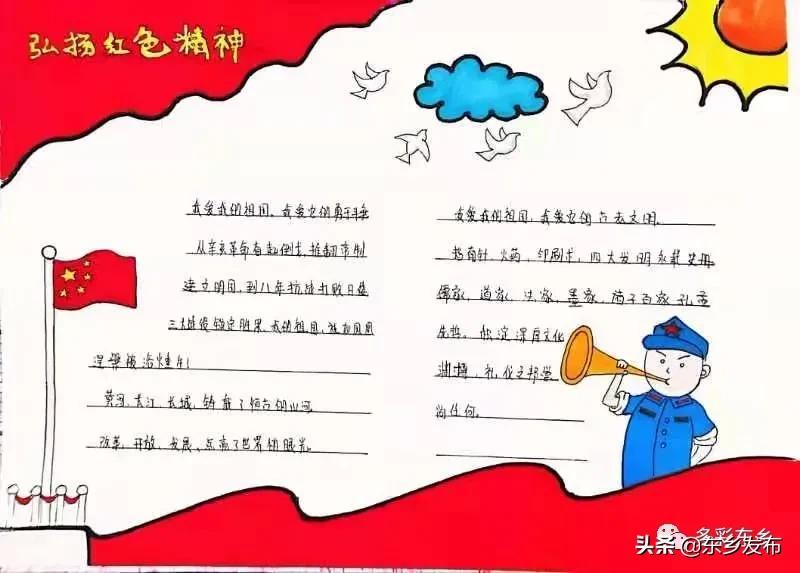 弘扬红色精神
我爱我的祖国、我爱它的勇
从辛亥革命看起倒去,推翻帝制
建立明国,到八年抗战打败日
三大战役锚定胜果,我的祖国,被如凤凰
涅槃被浴火
黄河、长江、长城、铸最了独占的山河
改革、开放、发展、点亮了世界的眼光。
我爱我的祖国,我爱它的古去文明、
指南针、火药、印刷术,四大发明永载史册
儒家、道家、法家、墨家、诸子百家孔孟
先哲、沉淀深厚文化
渊博、礼仪之邦
向任何。
多彩东乡
头条@东乡发布